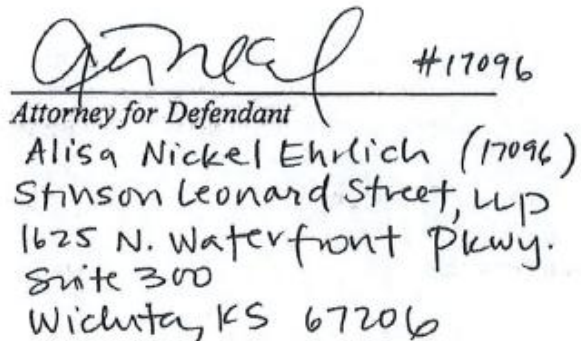 #17096
Attorney for Defendant
Alisa Nickel Ehrlich (17096)
Stinson Leonard Street, LLP
1625 N. Waterfront Pkwy.
Suite 300
Wichita, KS 67206